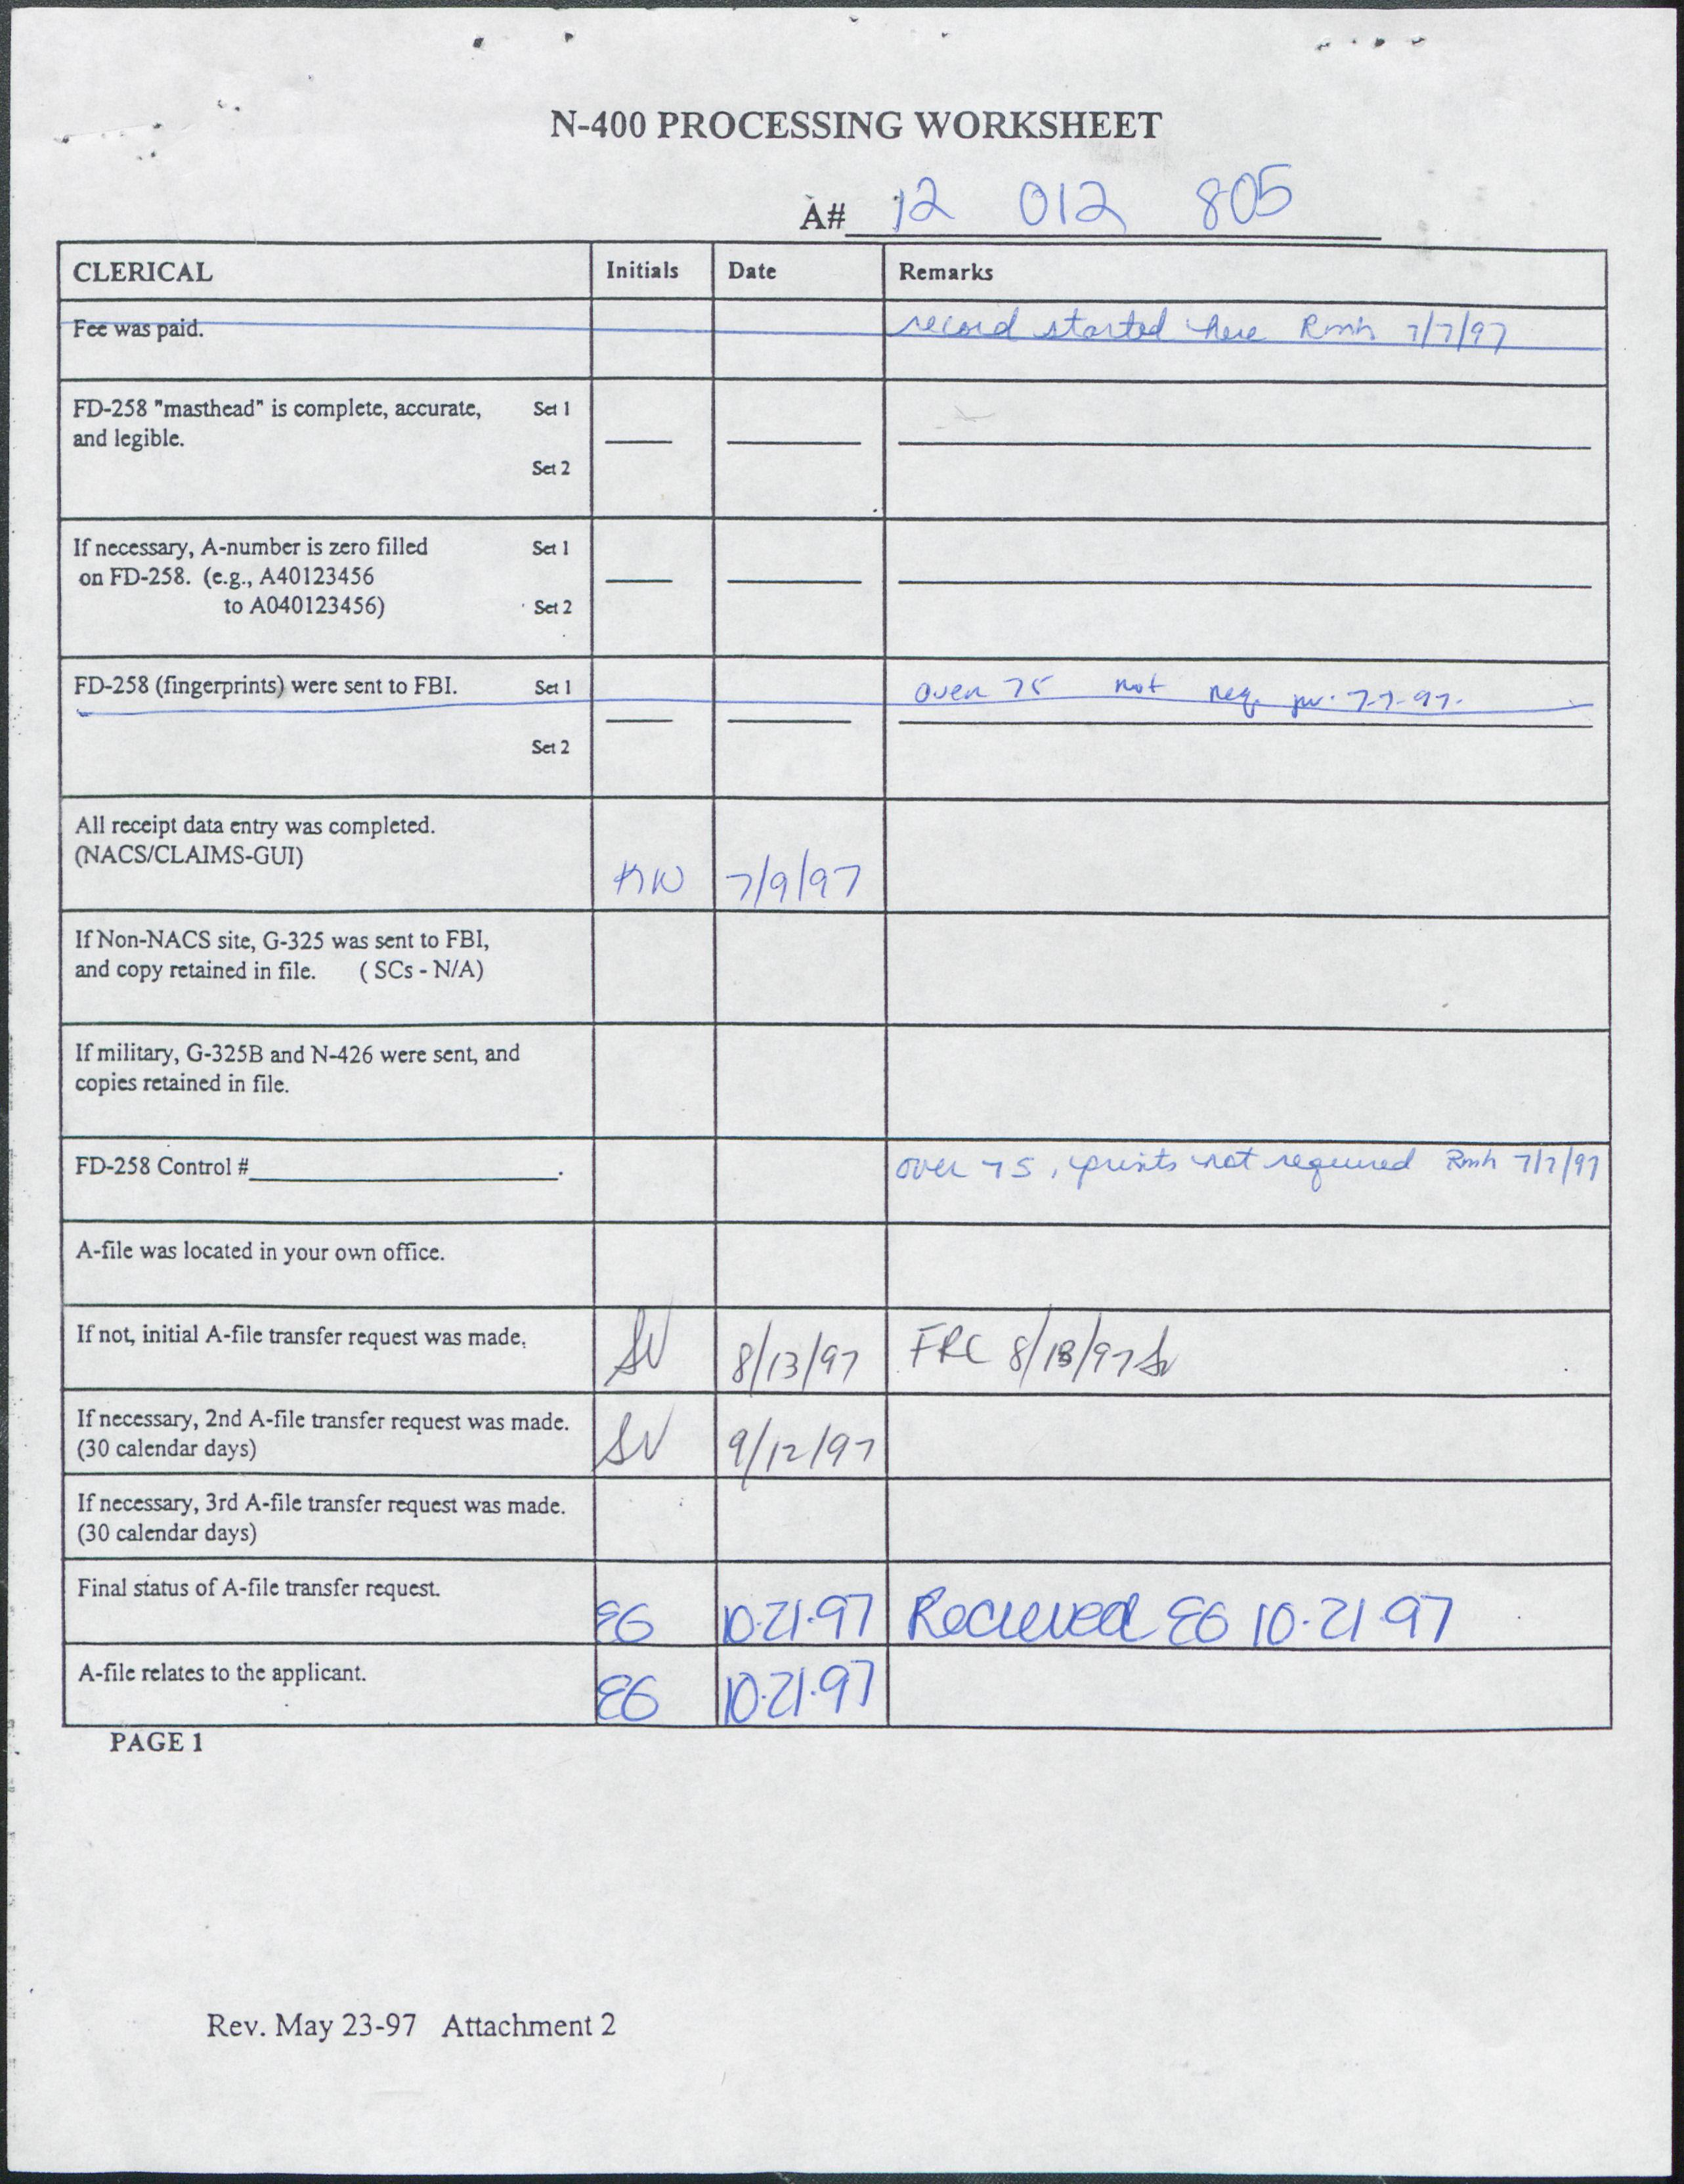 N-400 PROCESSING WORKSHEET
A# 12 012 805
CLERICAL Initials Date Remarks
Fee was paid. record started here Rmh 7/7/97
FD-258 "masthead" is complete, accurate, Set 1
and legible.
Set 2
If necessary, A-number is zero filled Set 1
on FD-258. (e.g., A40123456
to A040123456) Set 2
FD-258 (fingerprints) were sent to FBI. Set 1 over 75 not req. 7-7-97.
Set 2
All receipt data entry was completed.
(NACS/CLAIMS-GUI)
KW 7/9/97
If Non-NACS site, G-325 was sent to FBI,
and copy retained in file. ( SCs - N/A)
If military, G-325B and N-426 were sent, and
copies retained in file.
FD-258 Control # . over 75, prints not required Rmh 7/7/97
A-file was located in your own office.
If not, initial A-file transfer request was made. SV 8/13/97 FRC 8/13/97 SV
If necessary, 2nd A-file transfer request was made.
(30 calendar days) SV 9/12/97
If necessary, 3rd A-file transfer request was made.
(30 calendar days)
Final status of A-file transfer request.
EG 10·21·97 Recieved EG 10·21·97
A-file relates to the applicant.
EG 10·21·97
PAGE 1
Rev. May 23-97 Attachment 2